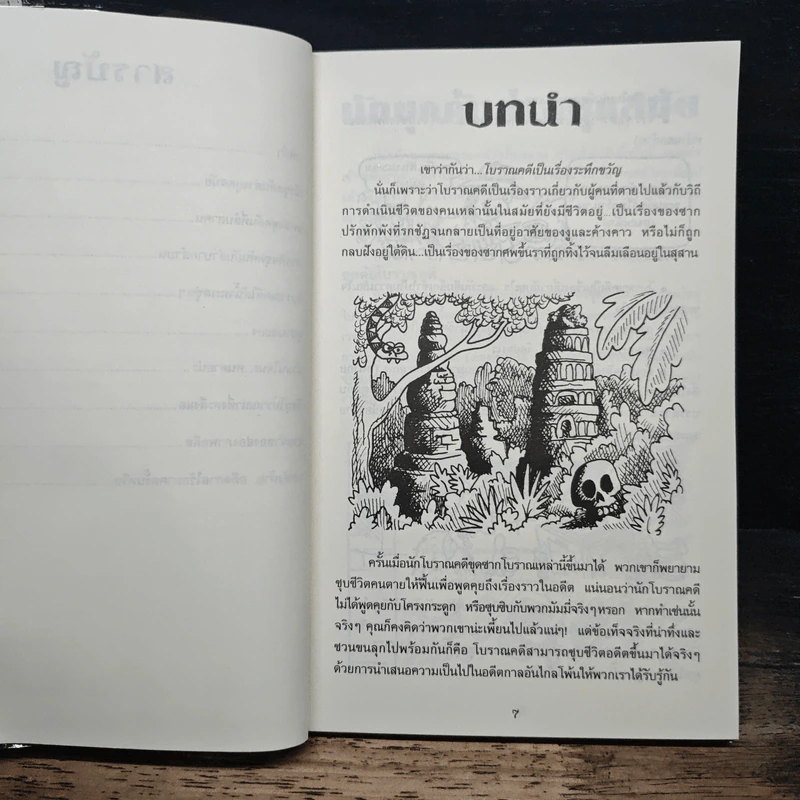 บทนำ
เขาว่ากันว่า...โบราณคดีเป็นเรื่องระทึกขวัญ
นั่นก็เพราะว่าโบราณคดีเป็นเรื่องราวเกี่ยวกับผู้คนที่ตายไปแล้วกับวิถี
การดำเนินชีวิตของคนเหล่านั้นในสมัยที่ยังมีชีวิตอยู่...เป็นเรื่องของซาก
ปรักหักพังที่รกชัฏจนกลายเป็นที่อยู่อาศัยของงูและค้างคาว หรือไม่ก็ถูก
กลบฝังอยู่ใต้ดิน...เป็นเรื่องของซากศพขึ้นราที่ถูกทิ้งไว้จนลืมเลือนอยู่ในสุสาน
ครั้นเมื่อนักโบราณคดีขุดซากโบราณเหล่านี้ขึ้นมาได้ พวกเขาก็พยายาม
ชุบชีวิตคนตายให้ฟื้นเพื่อพูดคุยถึงเรื่องราวในอดีต แน่นอนว่านักโบราณคดี
ไม่ได้พูดคุยกับโครงกระดูก หรือซุบซิบกับพวกมัมมี่จริงๆหรอก หากทำเช่นนั้น
จริงๆ คุณก็คงคิดว่าพวกเขาน่ะเพี้ยนไปแล้วแน่ๆ! แต่ข้อเท็จจริงที่น่าทึ่งและ
ชวนขนลุกไปพร้อมกันก็คือ โบราณคดีสามารถชุบชีวิตอดีตขึ้นมาได้จริงๆ
ด้วยการนำเสนอความเป็นไปในอดีตกาลอันไกลโพ้นให้พวกเราได้รับรู้กัน
๗
สารบัญ